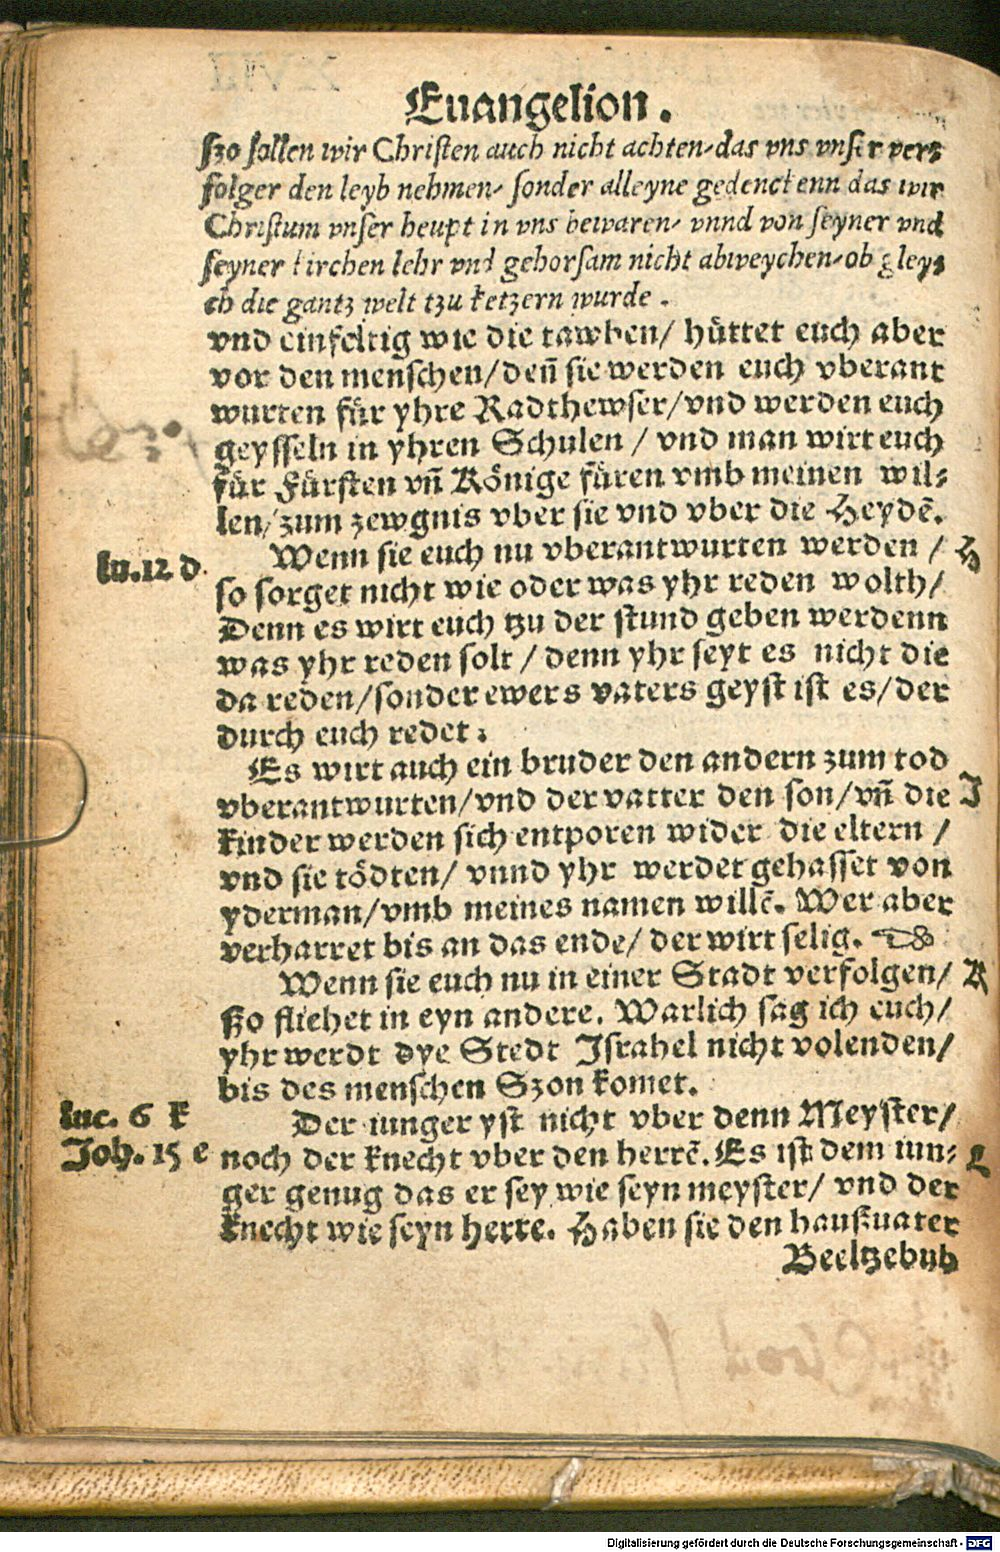 Euangelion.
ſzo ſollen wir Chriſten auch nicht achten/ das vns vnſer ver⸗
folger den leyb nehmen/ ſonder alleyne gedenckenn das wir
Chriſtum vnſer heupt in vns bewaren/ vnnd von ſeyner vnd
ſeyner kirchen lehr vnd gehorſam nicht abweychen/ ob gley⸗
ch die gantz welt tzu ketzern wurde.
vnd einfeltig wie die tawben/ hüttet euch aber
vor den menſchen/ deñ ſie werden euch vberant
wurten für yhre Radthewſer/ vnd werden euch
geyſſeln in yhren Schulen / vnd man wirt euch
für Fürſten vñ Könige füren vmb meinen wil⸗
len/ zum zewgnis vber ſie vnd vber die Heydē.
Wenn ſie euch nu vberantwurten werden / H
lu.12 d.
ſo ſorget nicht wie oder was yhr reden wolth/
Denn es wirt euch tzu der ſtund geben werdenn
was yhr reden ſolt / denn yhr ſeyt es nicht die
da reden/ ſonder ewers vaters geyſt iſt es/ der
durch euch redet.
Es wirt auch ein bruder den andern zum tod
vberantwurten/ vnd der vatter den ſon/ vñ die J
kinder werden ſich entporen wider die eltern /
vnd ſie tödten/ vnnd yhr werdet gehaſſet von
yderman/ vmb meines namen willē. Wer aber
verharret bis an das ende/ der wirt ſelig. ☜
Wenn ſie euch nu in einer Stadt verfolgen/ K
ſzo fliehet in eyn andere. Warlich ſag ich euch/
yhr werdt dye Stedt Iſrahel nicht volenden/
bis des menſchen Szon komet.
luc. 6 k
Der iunger yſt nicht vber denn Meyſter/
Joh. 15 e
noch der knecht vber den herrē. Es iſt dem iun⸗ L
ger genug das er ſey wie ſeyn meyſter/ vnd der
knecht wie ſeyn herre. Haben ſie den hauſzuater
Beeltzebub
Digitalisierung gefördert durch die Deutsche Forschungsgemeinschaft - DFG